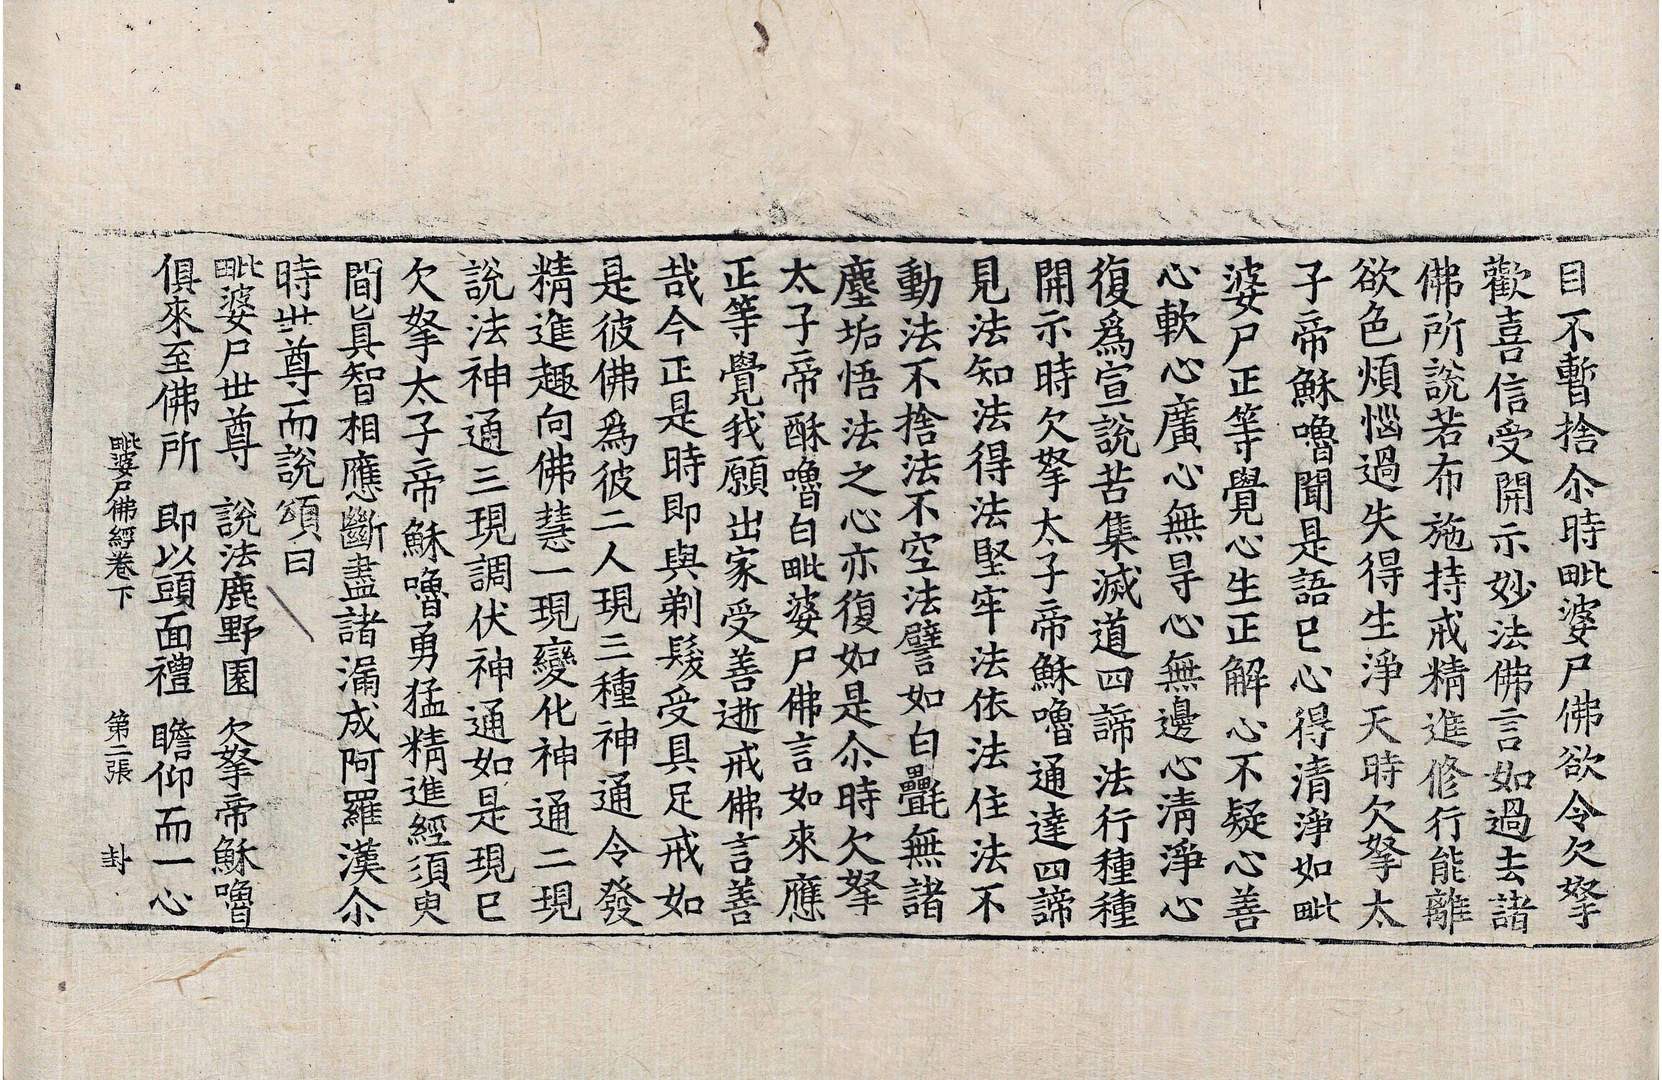 目不暫捨尒時毗婆尸佛欲令欠拏
歡喜信受開示妙法佛言如過去諸
佛所說若布施持戒精進修行能離
欲色煩惱過失得生淨天時欠拏太
子帝穌嚕聞是語已心得清淨如毗
婆尸正等覺心生正解心不疑心善
心軟心廣心無㝵心無邊心清淨心
復爲宣說苦集滅道四諦法行種種
開示時欠拏太子帝穌嚕通達四諦
見法知法得法堅牢法依法住法不
動法不捨法不空法譬如白㲲無諸
塵垢悟法之心亦復如是尒時欠拏
太子帝酥嚕白毗婆尸佛言如來應
正等覺我願出家受善逝戒佛言善
哉今正是時即與剃髮受具足戒如
是彼佛爲彼二人現三種神通令發
精進趣向佛慧一現變化神通二現
說法神通三現調伏神通如是現已
欠拏太子帝穌嚕勇猛精進經須臾
間眞智相應斷盡諸漏成阿羅漢尒
時世尊而說頌曰
毗婆尸世尊 說法鹿野園 欠拏帝穌嚕
俱來至佛所 即以頭面禮 瞻仰而一心
毗婆尸佛經卷下 第二張 封